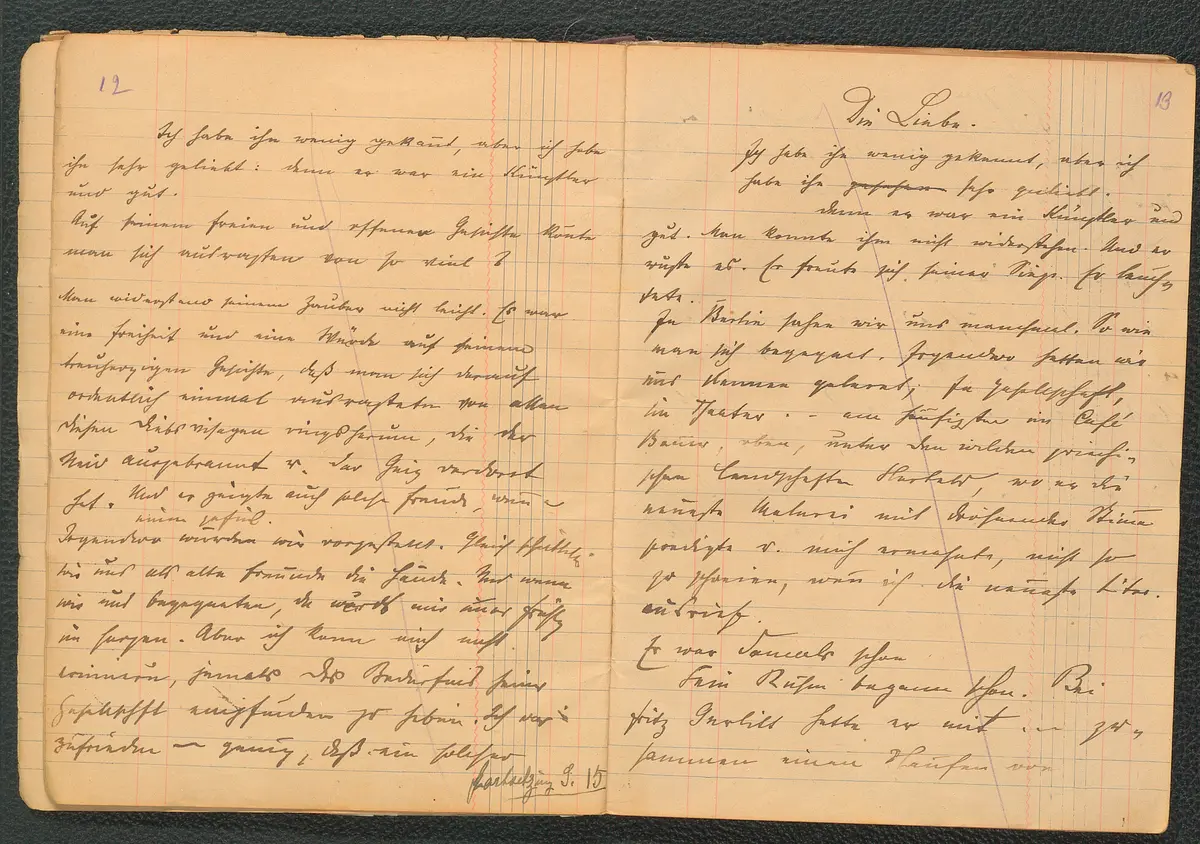 12
Ich habe ihn wenig gekannt, aber ich habe
ihn sehr geliebt: denn er war ein Künstler
und gut.
Auf seinem freien und offenen Gesichte konte
man sich ausrasten von so viel
Man widerstand seinem Zauber nicht leicht. Es war
eine Freiheit und eine Würde auf seinem
treuherzigen Gesichte, daß man sich darauf
ordentlich einmal ausrastete von allen
diesen Diebsvisagen ringsherum, die der
Neid ausgebrannt u. der Geiz verdorrt
hat. Und er zeigte auch solche Freude, wenn
einem gefiel.
Irgendwo wurden wir vorgestellt. Gleich schüttelten
wir uns als alte Freunde die Hände. Und wenn
wir uns begegneten, da wurde mir immer fröhlich
im Herzen. Aber ich kann mich nicht
erinnern, jemals das Bedürfnis seiner
Gesellschaft empfunden zu haben. Ich war
zufrieden – genug, daß ein solcher
Fortsetzung S. 15
13
Die Liebe.
Ich habe ihn wenig gekannt, aber ich
habe ihn gesehen sehr geliebt.
Denn er war ein Künstler und
gut. Man konnte ihm nicht widerstehen. Und er
wußte es. Er freute sich seiner Siege. Er leuch-
tete.
In Berlin sahen wir uns manchmal. So wie
man sich begegnet. Irgendwo hatten wir
uns kennen gelernt; in Gesellschaft,
im Theater. – am häufigsten im Café
Bauer, oben, unter den wilden griechi-
schen Landschaften, wo er die
neueste Malerei mit dröhnender Stimme
predigte u. mich ermahnte, nicht so
zu schreien, wenn ich die neueste Liter.
ausrief.
Er war damals schon
Sein Ruhm begann schon. Bei
Fritz Gurlitt hatte er mit zu-
sammen einen Haufen von